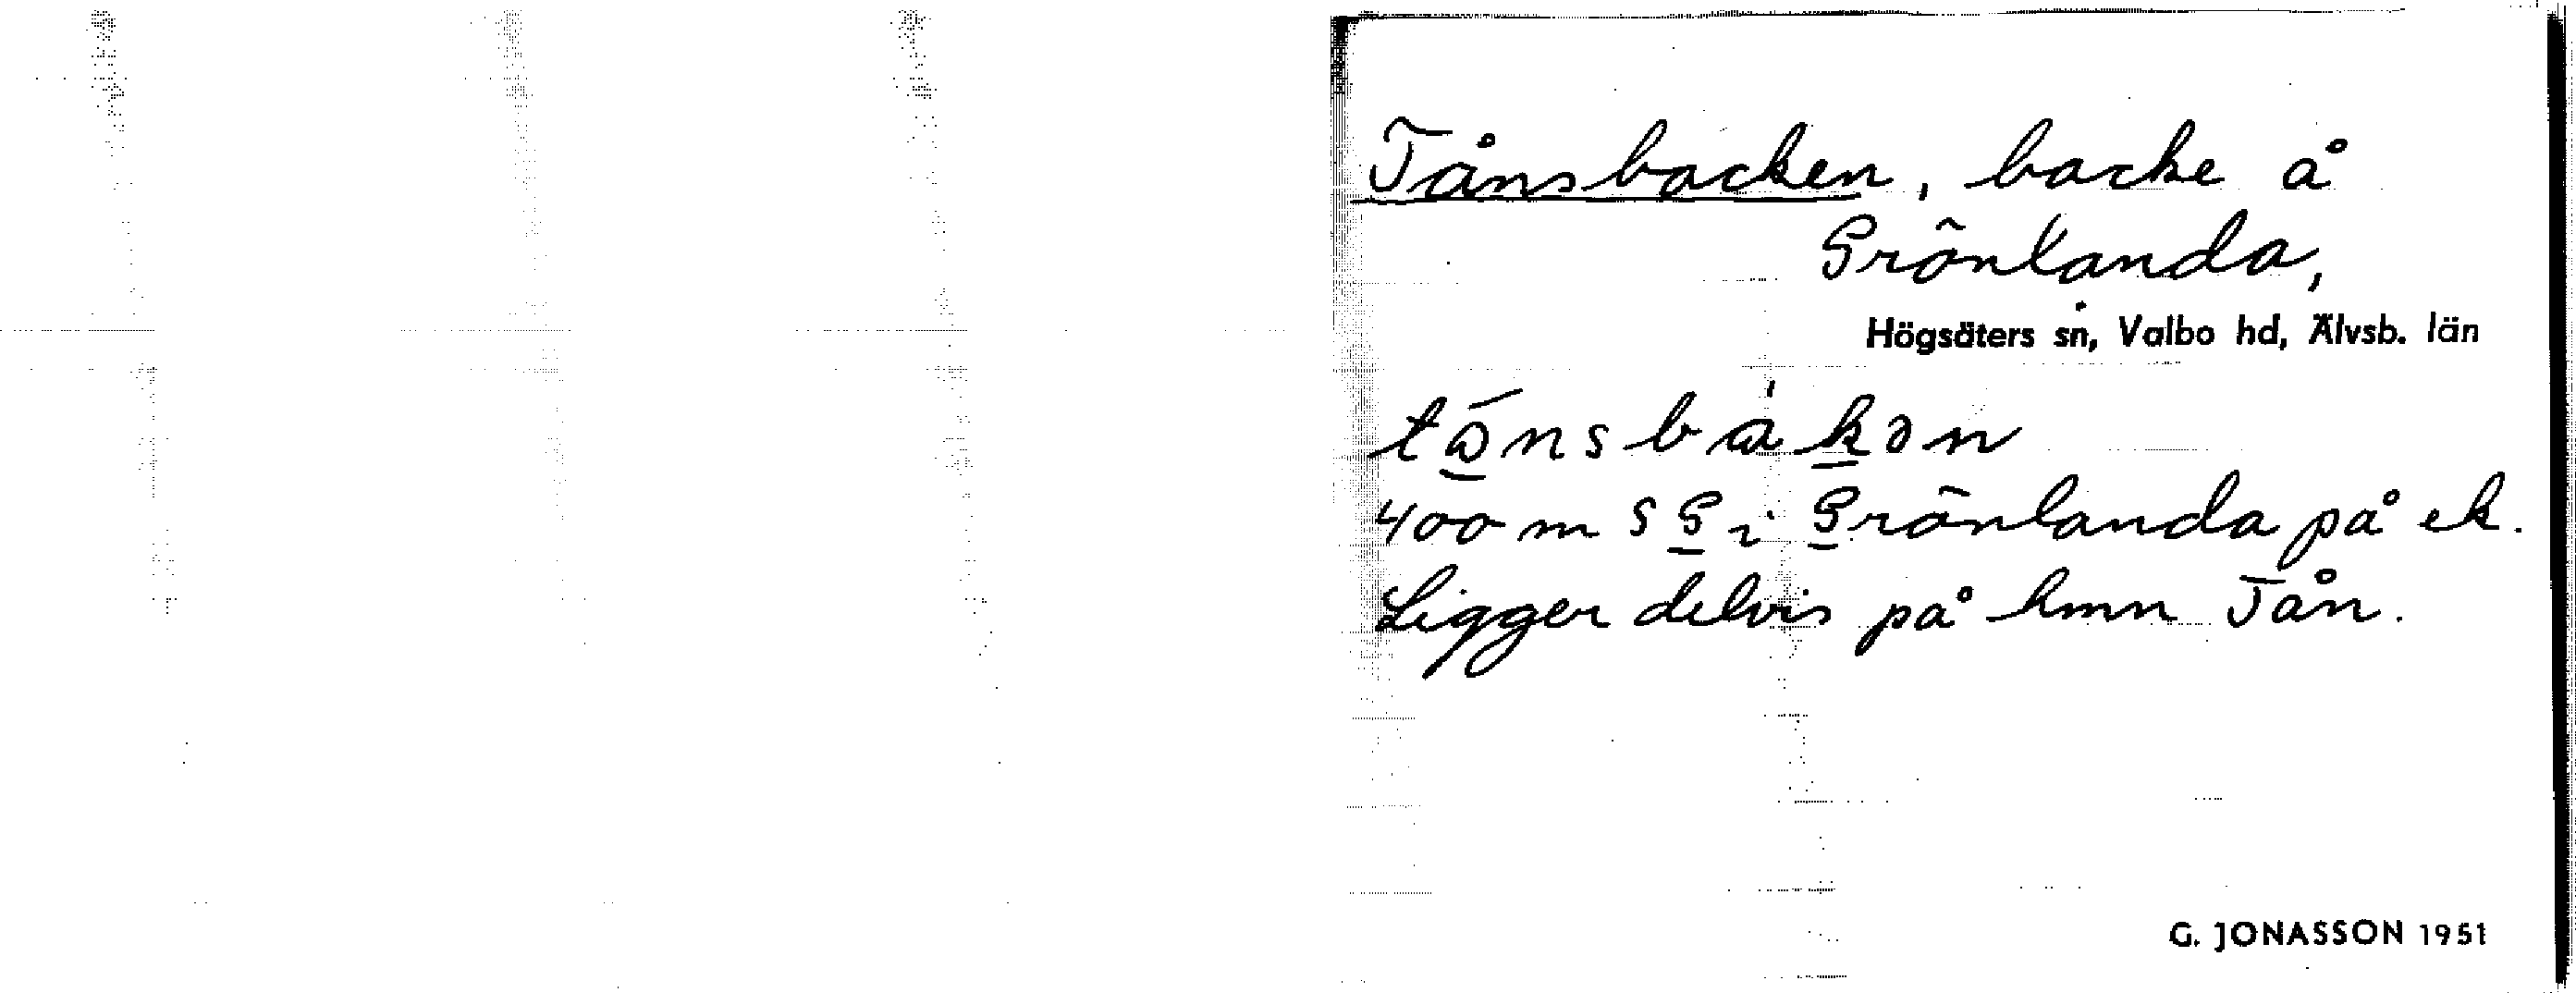 Tånsbacken, backe å
Grönlanda,
Högsäters sn, Valbo hd, Älvsb. län
400 m S G i Grönlanda på ek.
Ligger delvis på hmn Tån.
G. JONASSON 1951